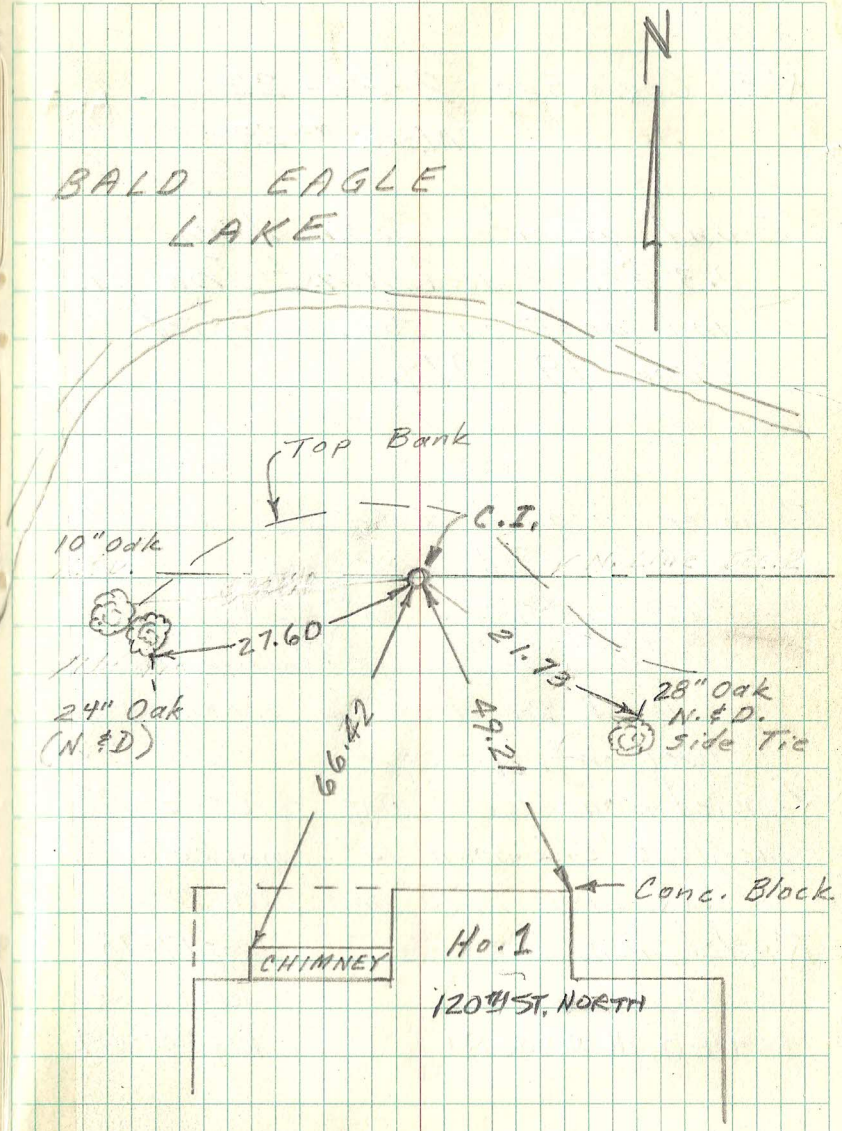 N
BALD EAGLE
LAKE
Top Bank
C.I.
10" Oak
27.60
21.73
24" Oak
(N &D)
28" Oak
N. & D.
Side Tie
66.42
49.21
Conc. Block
Ho. 1
CHIMNEY
120TH ST. NORTH